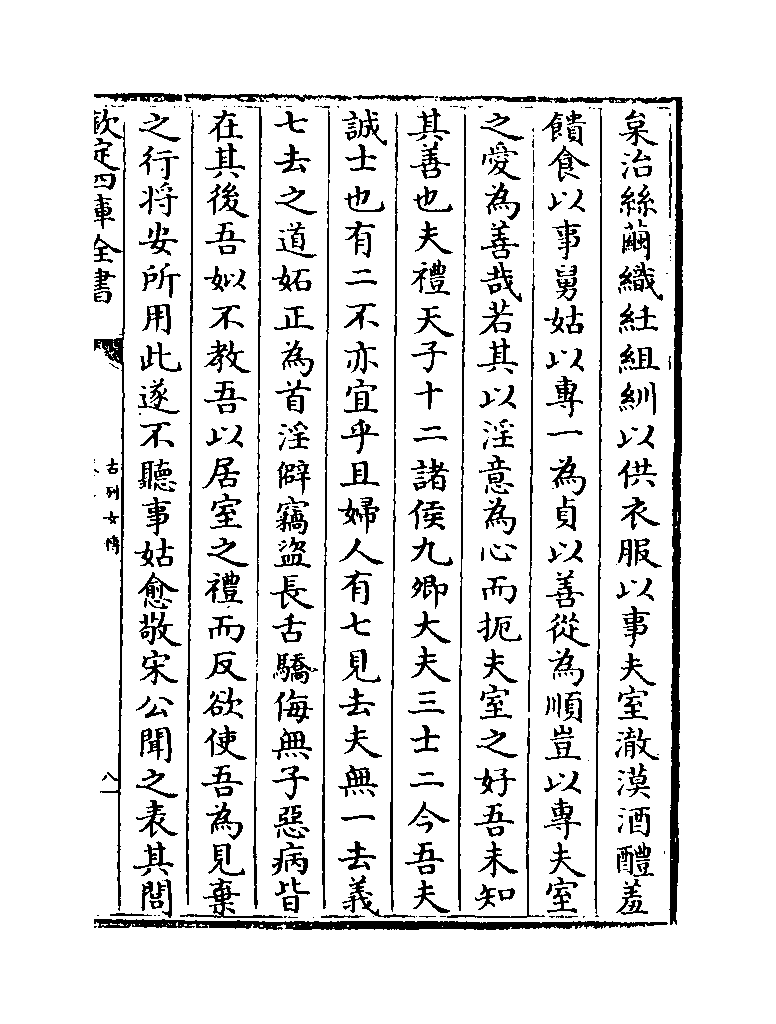 枲治絲繭織紝組紃以供衣服以事夫室澈漠酒醴羞
饋食以事舅姑以專一為貞以善從為順豈以專夫室
之愛為善哉若其以淫意為心而扼夫室之好吾未知
其善也夫禮天子十二諸侯九卿大夫三士二今吾夫
誠士也有二不亦宜乎且婦人有七見去夫無一去義
七去之道妬正為首淫僻竊盜長舌驕侮無子惡病皆
在其後吾姒不教吾以居室之禮而反欲使吾為見棄
之行将安所用此遂不聽事姑愈敬宋公聞之表其閭
欽定四庫全書
古列女傳
八